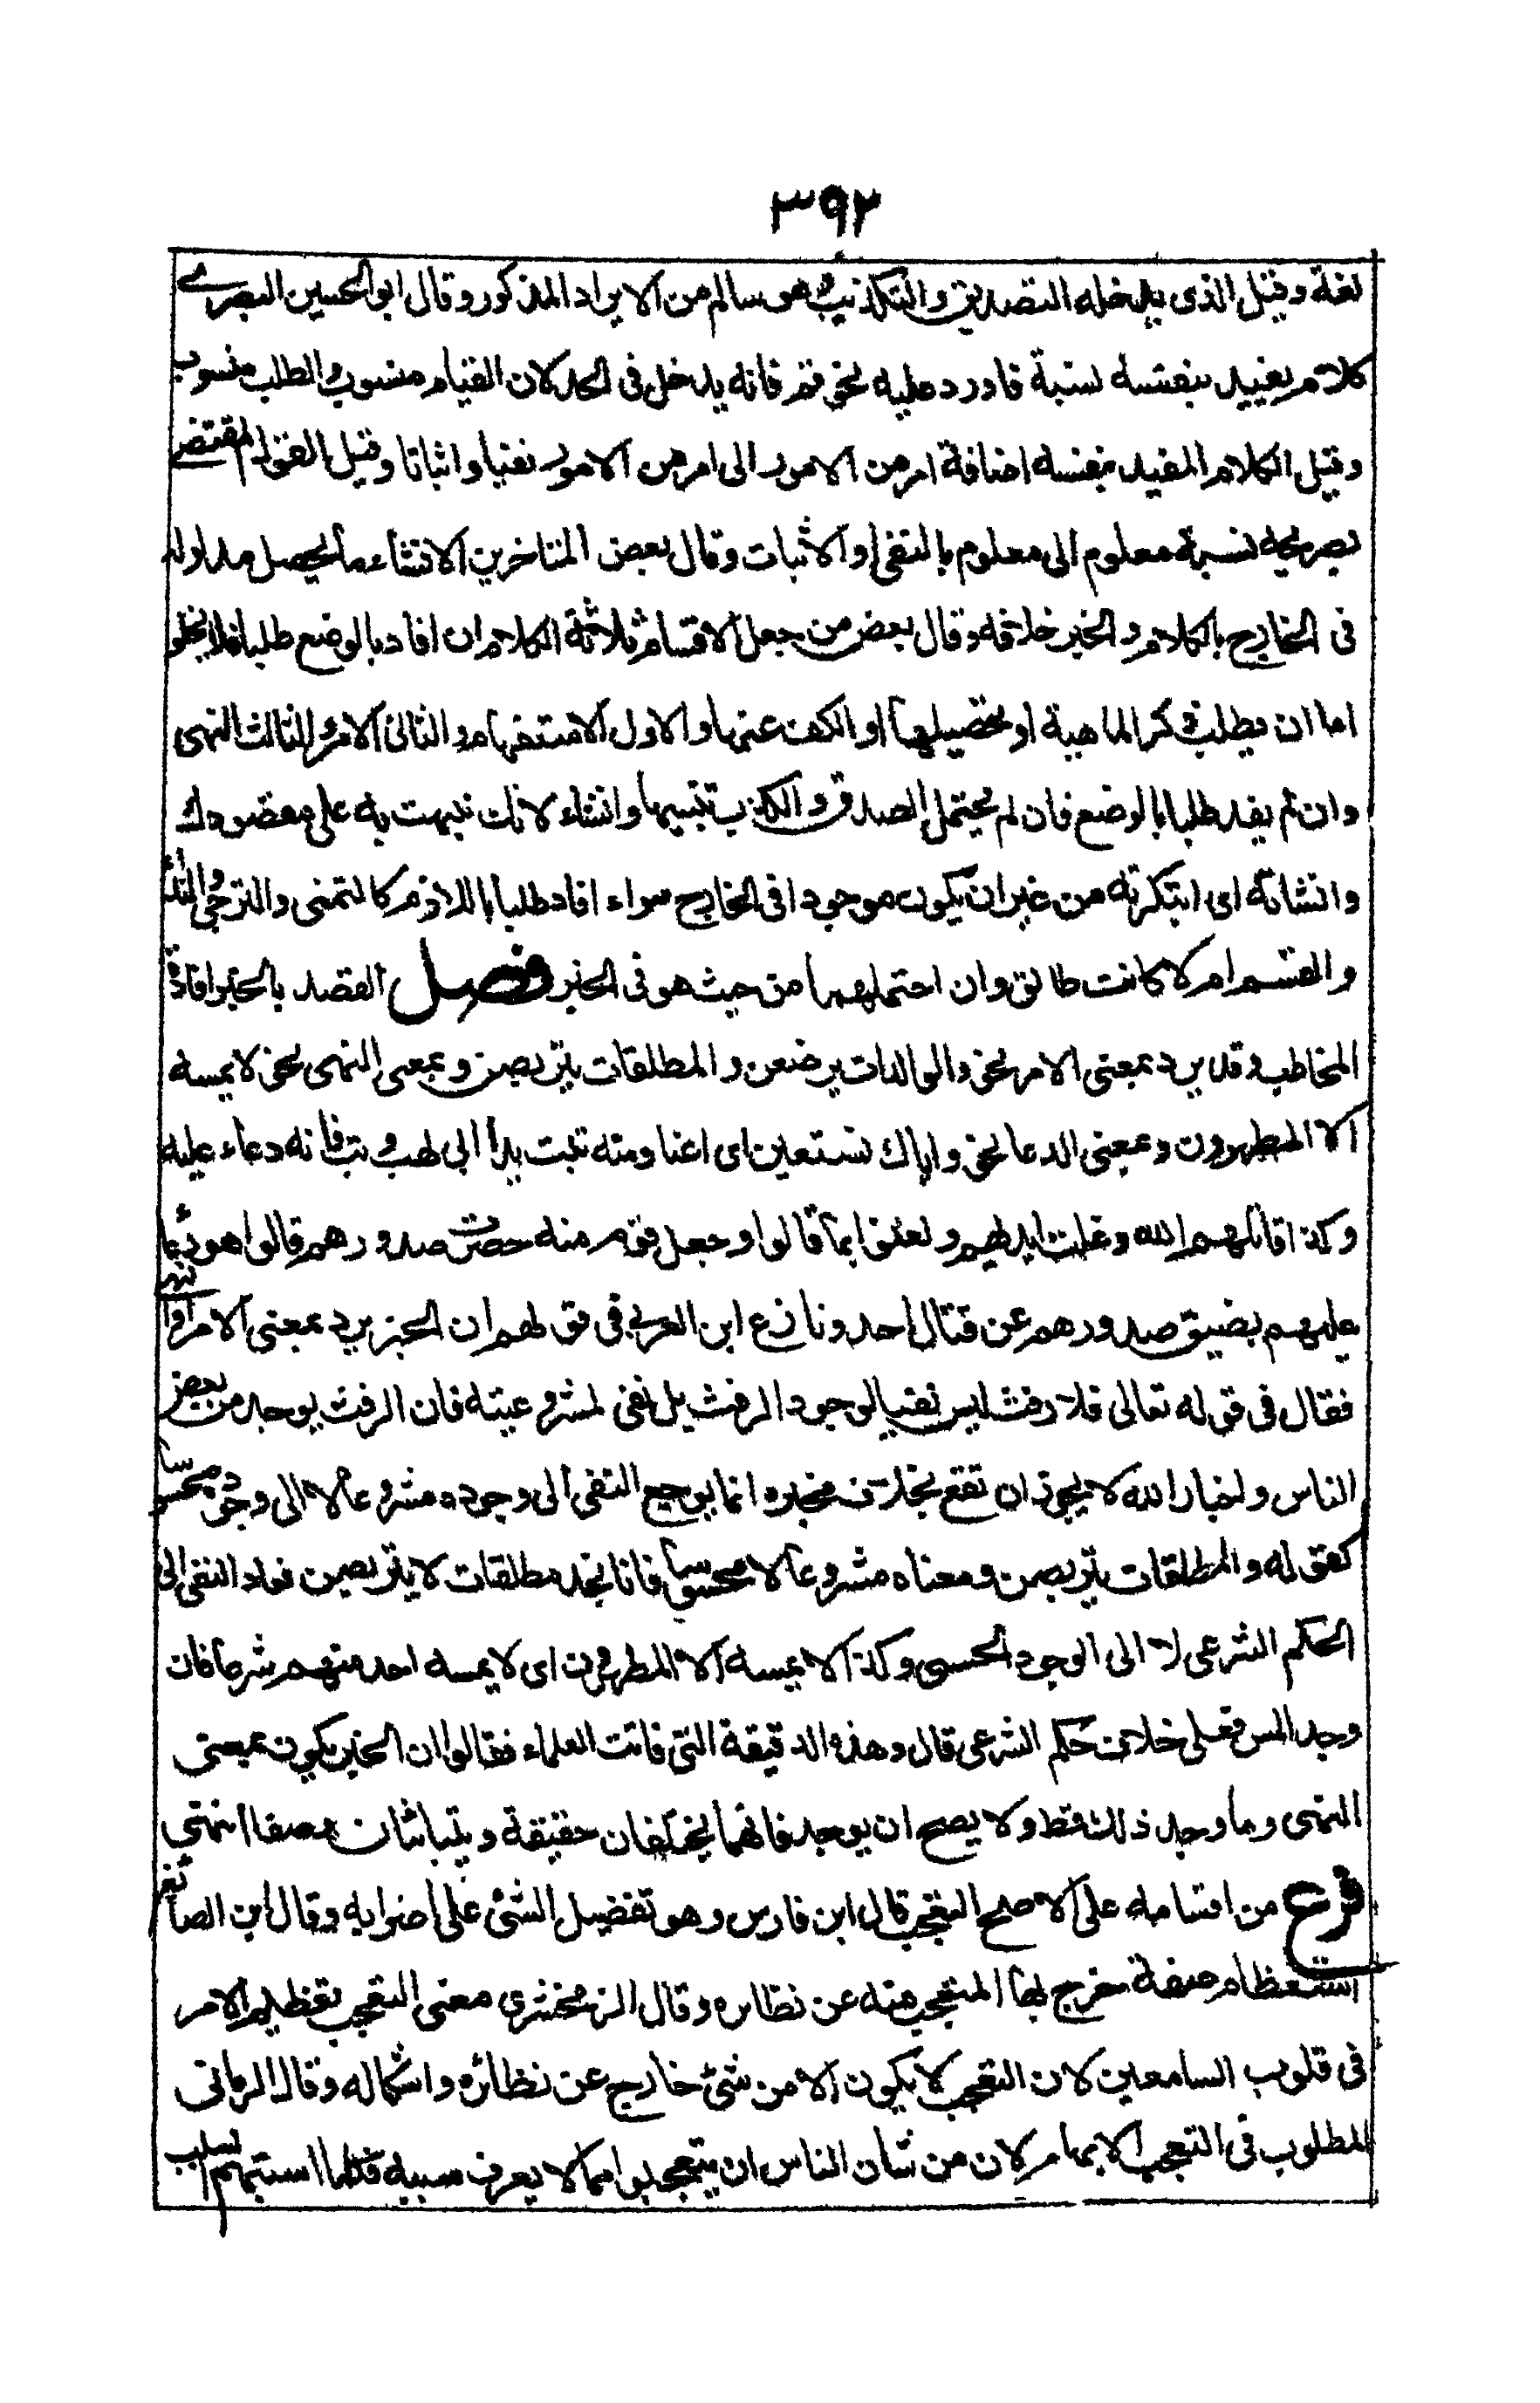 ٣٩٢
لغة وقيل الذى يدخله التصديق والتكذيب وهو سالم من الايراد المذكور وقال ابو الحسين البصرى
كلام يفيد بنفسه نسبة فاورد عليه نحو قم فانه يدخل فى الحد لان القيام منسوب والطلب منسوب
وقيل الكلام المفيد بنفسه اضافة امر من الامور الى امر من الامور نفيا واثباتا وقيل القول المقتضى
بصريحه نسبة معلوم الى معلوم بالنفى او الاثبات وقال بعض المتاخرين الانشاء ما يحصل مدلوله
فى الخارج بالكلام والخبر خلافه وقال بعض من جعل الاقسام ثلاثة الكلام ان افاد بالوضع طلبا فلا يخلو
اما ان يطلب ذكر الماهية او تحصيلها او الكف عنها والاول الاستفهام والثانى الامر والثالث النهى
وان لم يفد طلبا بالوضع فان لم يحتمل الصدق والكذب تنبيها وانشاء لانك نبهت به على مقصودك
وانشاته اى ابتكرته من غير ان يكون موجودا فى الخارج سواء افاد طلبا باللازم كالتمنى والترجى والنداء
والقسم ام لا كانت طالق وان احتملهما من حيث هو فى الخبر فصل القصد بالخبر افادة
المخاطب وقد يرد بمعنى الامر نحو والوالدات يرضعن والمطلقات يتربصن وبمعنى النهى نحو لا يمسه
الا المطهرون وبمعنى الدعا نحو واياك نستعين اى اعنا ومنه تبت يدا ابى لهب وتب فانه دعاء عليه
وكذا قاتلهم الله وغلت ايديهم ولعنوا بما قالوا وجعل قوم منه حصرت صدورهم قالوا هو دعاء
عليهم بضيق صدورهم عن قتال احد ونازع ابن العربى فى قولهم ان الخبر يرد بمعنى الامر او النهى
فقال فى قوله تعالى فلا رفث ليس نفيا لوجود الرفث بل نفى لمشروعيته فان الرفث يوجد من بعض
الناس واخبار الله لا يجوز ان تقع بخلاف مخبره انما يرجع النفى الى وجوده مشروعا لا الى وجوده محسوسا
كقوله والمطلقات يتربصن ومعناه مشروعا لا محسوسا فانا نجد مطلقات لا يتربصن فعاد النفى الى
الحكم الشرعى لا الى الوجود الحسى وكذا لا يمسه الا المطهرون اى لا يمسه احد منهم شرعا فان
وجد المس فعلى خلاف حكم الشرعى قال وهذه الدقيقة التى فاتت العلماء فقالوا ان الخبر يكون بمعنى
النهى وما وجد ذلك قط ولا يصح ان يوجد فانهما يختلفان حقيقة ويتباينان وصفا انتهى
فرع من اقسامه على الاصح التعجب قال ابن فارس وهو تفضيل الشئ على اضرابه وقال ابن الصائغ
استعظام صفة خرج بها المتعجب منه عن نظائره وقال الزمخشرى معنى التعجب تعظيم الامر
فى قلوب السامعين لان التعجب لا يكون الا من شئ خارج عن نظائره واشكاله وقال الرمانى
المطلوب فى التعجب الابهام لان من شان الناس ان يتعجبوا مما لا يعرف سببه فكلما استبهم السبب